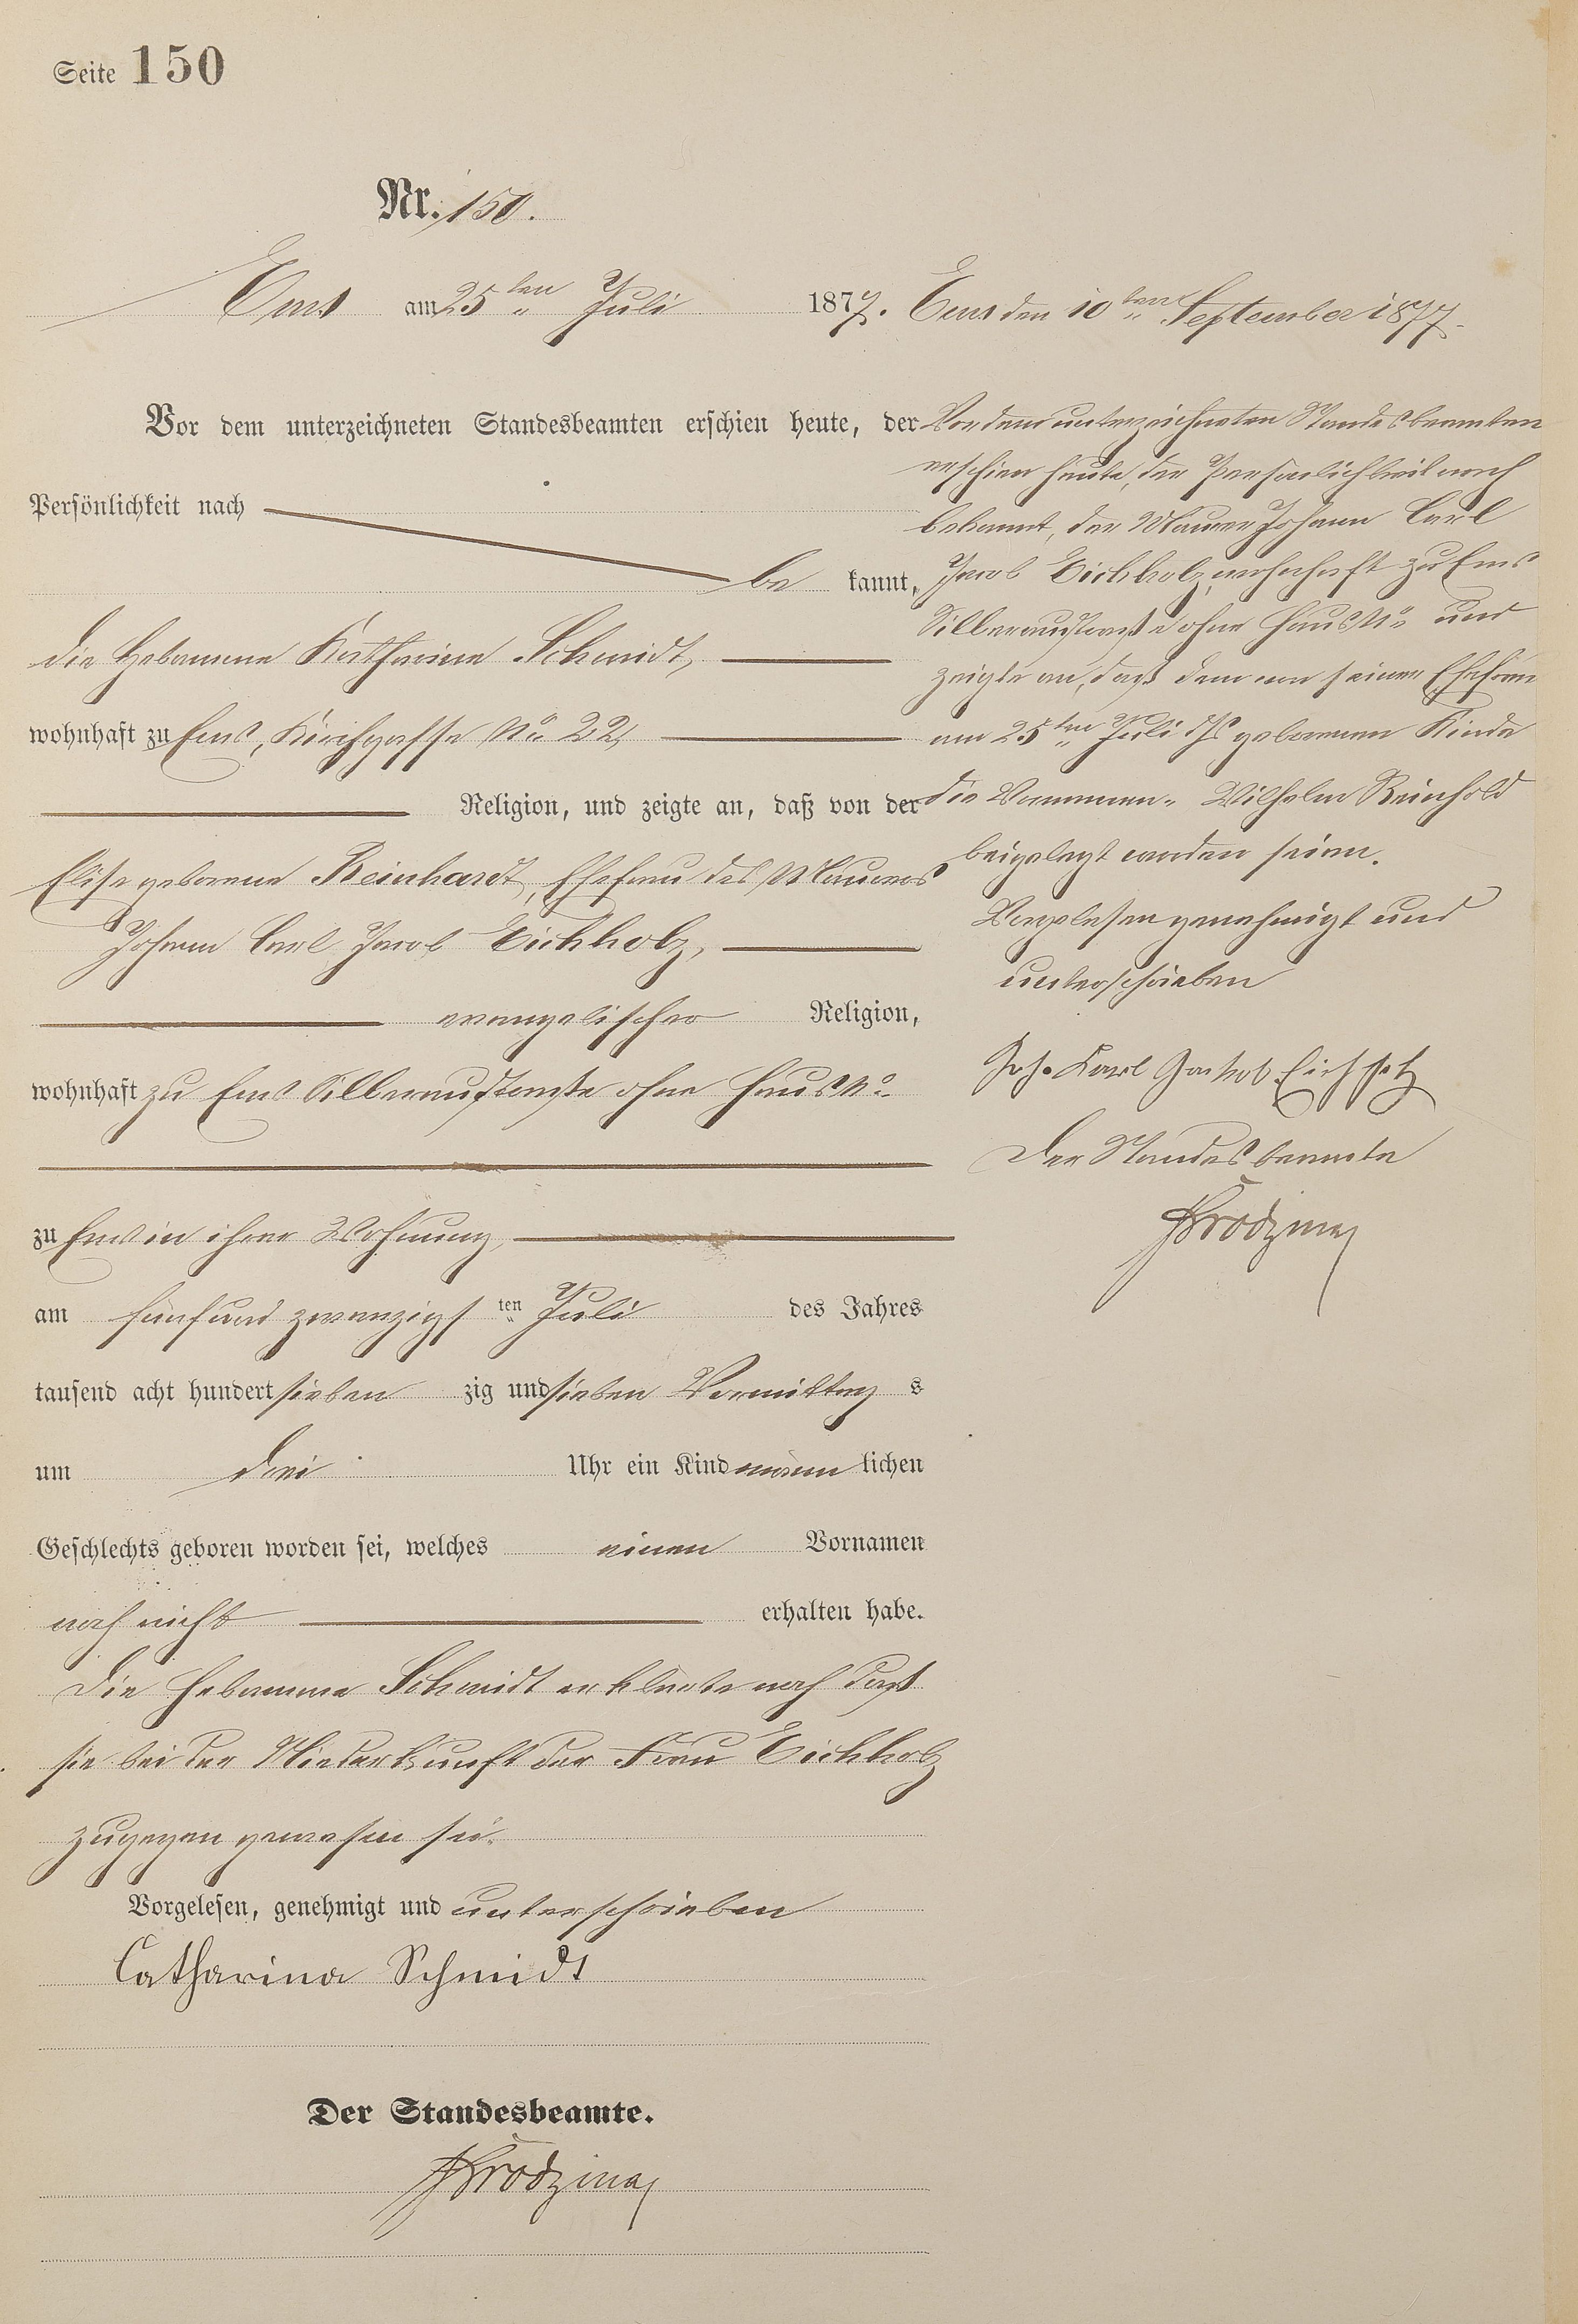 Seite 150
Nr. 150.
Ems am 25ten Juli 1877.
Vor dem unterzeichneten Standesbeamten erschien heute, der
Persönlichkeit nach
be kannt,
die Hebamme Katharina Schmidt,
wohnhaft zu Ems, Kirchgasse No 22,
Religion, und zeigte an, daß von der
Elise geborene Reinhardt, Ehefrau des Maurers
Johann Carl Jacob Eichholz,
evangelischer Religion,
wohnhaft zu Ems Silberaustraße ohne Haus No
zu Ems in ihrer Wohnung,
am fünfundzwanzigsten Juli des Jahres
tausend acht hundert siebenzig und sieben Vormittags
um drei Uhr ein Kind männlichen
Geschlechts geboren worden sei, welches einen Vornamen
noch nicht erhalten habe.
Die Hebamme Schmidt erklärte noch daß
sie bei der Niederkunft der Frau Eichholz
zugegen gewesen sei.
Vorgelesen, genehmigt und unterschrieben
Catharina Schmidt
Der Standesbeamte.
Ems den 10ten September 1877.
Vor dem unterzeichneten Standesbeamten
erschien heute, der Persönlichkeit nach
bekannt, der Maurer Johann Carl
Jacob Eichholz, wohnhaft zu Ems
Silberaustraße ohne Haus No und
zeigte an, daß dem von seiner Ehefrau
am 25ten Juli ds Js geborenen Kinde
die Vornamen Wilhelm Reinhold
beigelegt worden seien.
Vorgelesen genehmigt und
unterschrieben
Joh. Karl Jackob Eichholz
Der Standesbeamte